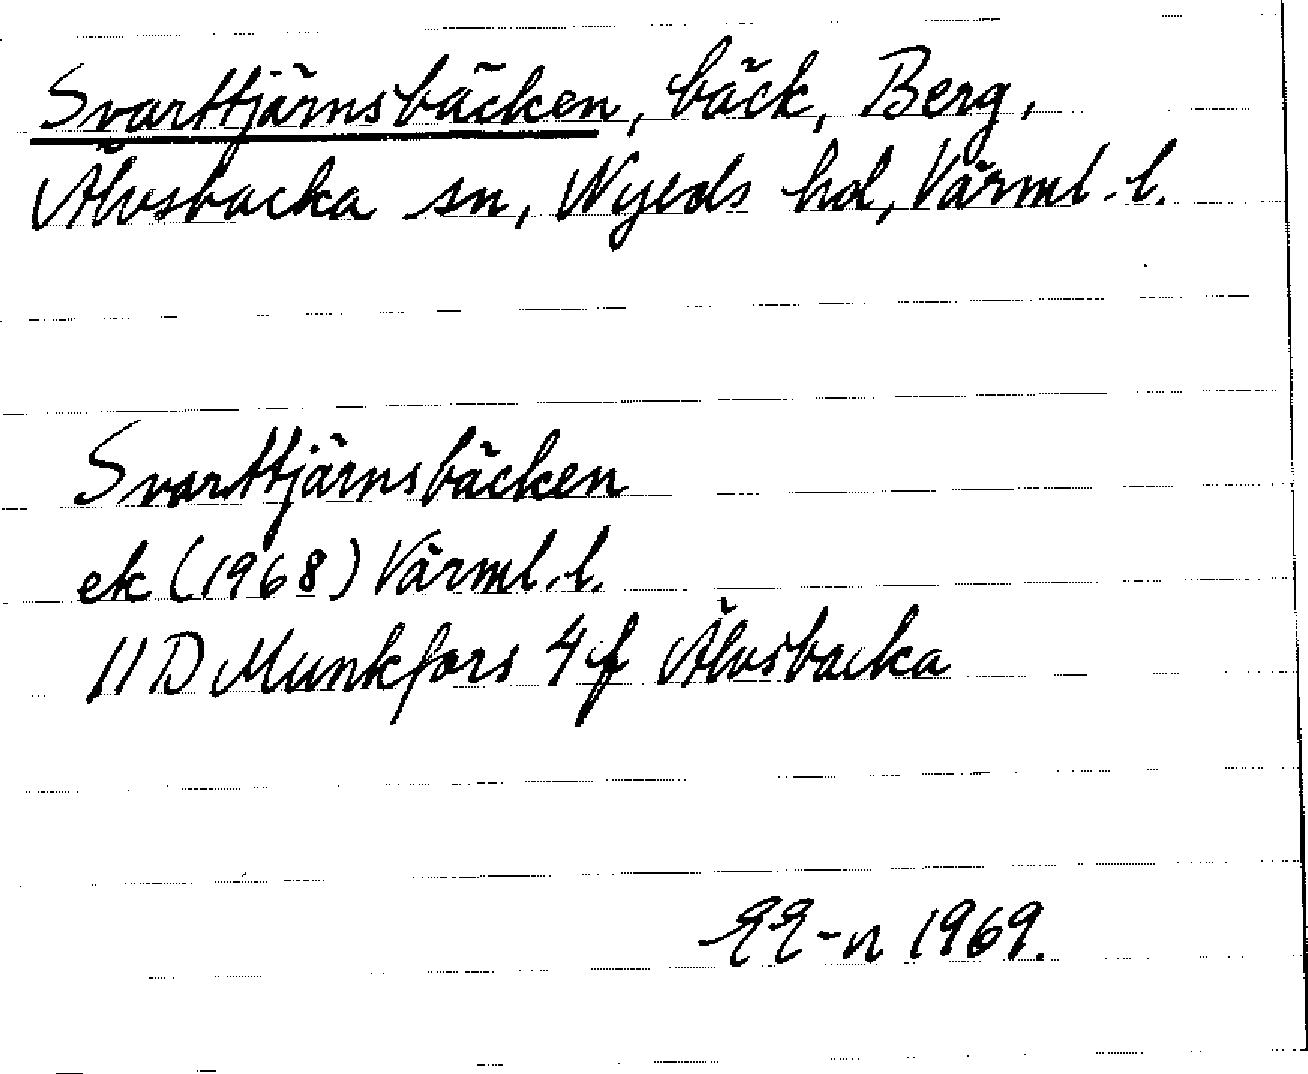 Svarttjärnsbäcken, bäck, Berg,
Älvsbacka sn, Nyeds hd, Värml. l.
Svarttjärnsbäcken
ek (1968) Värml. l.
11D Munkfors 4f Älvsbacka
EE-n 1969.